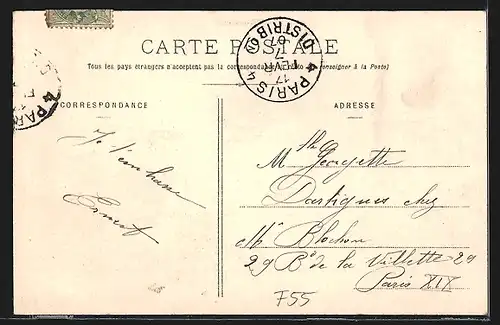 CARTE POSTALE
Tous les pays étrangers n'acceptent pas la correspondance au recto (se renseigner à la Poste)
PARIS 4 DISTRIBON
17
FEVR
07
PAR
CORRESPONDANCE
ADRESSE
Je t'embrasse
Ernest
Mlle Georgette
Dartigues chez
Mr Blochon
29 Bd de la Villette 29
Paris XIX
F55